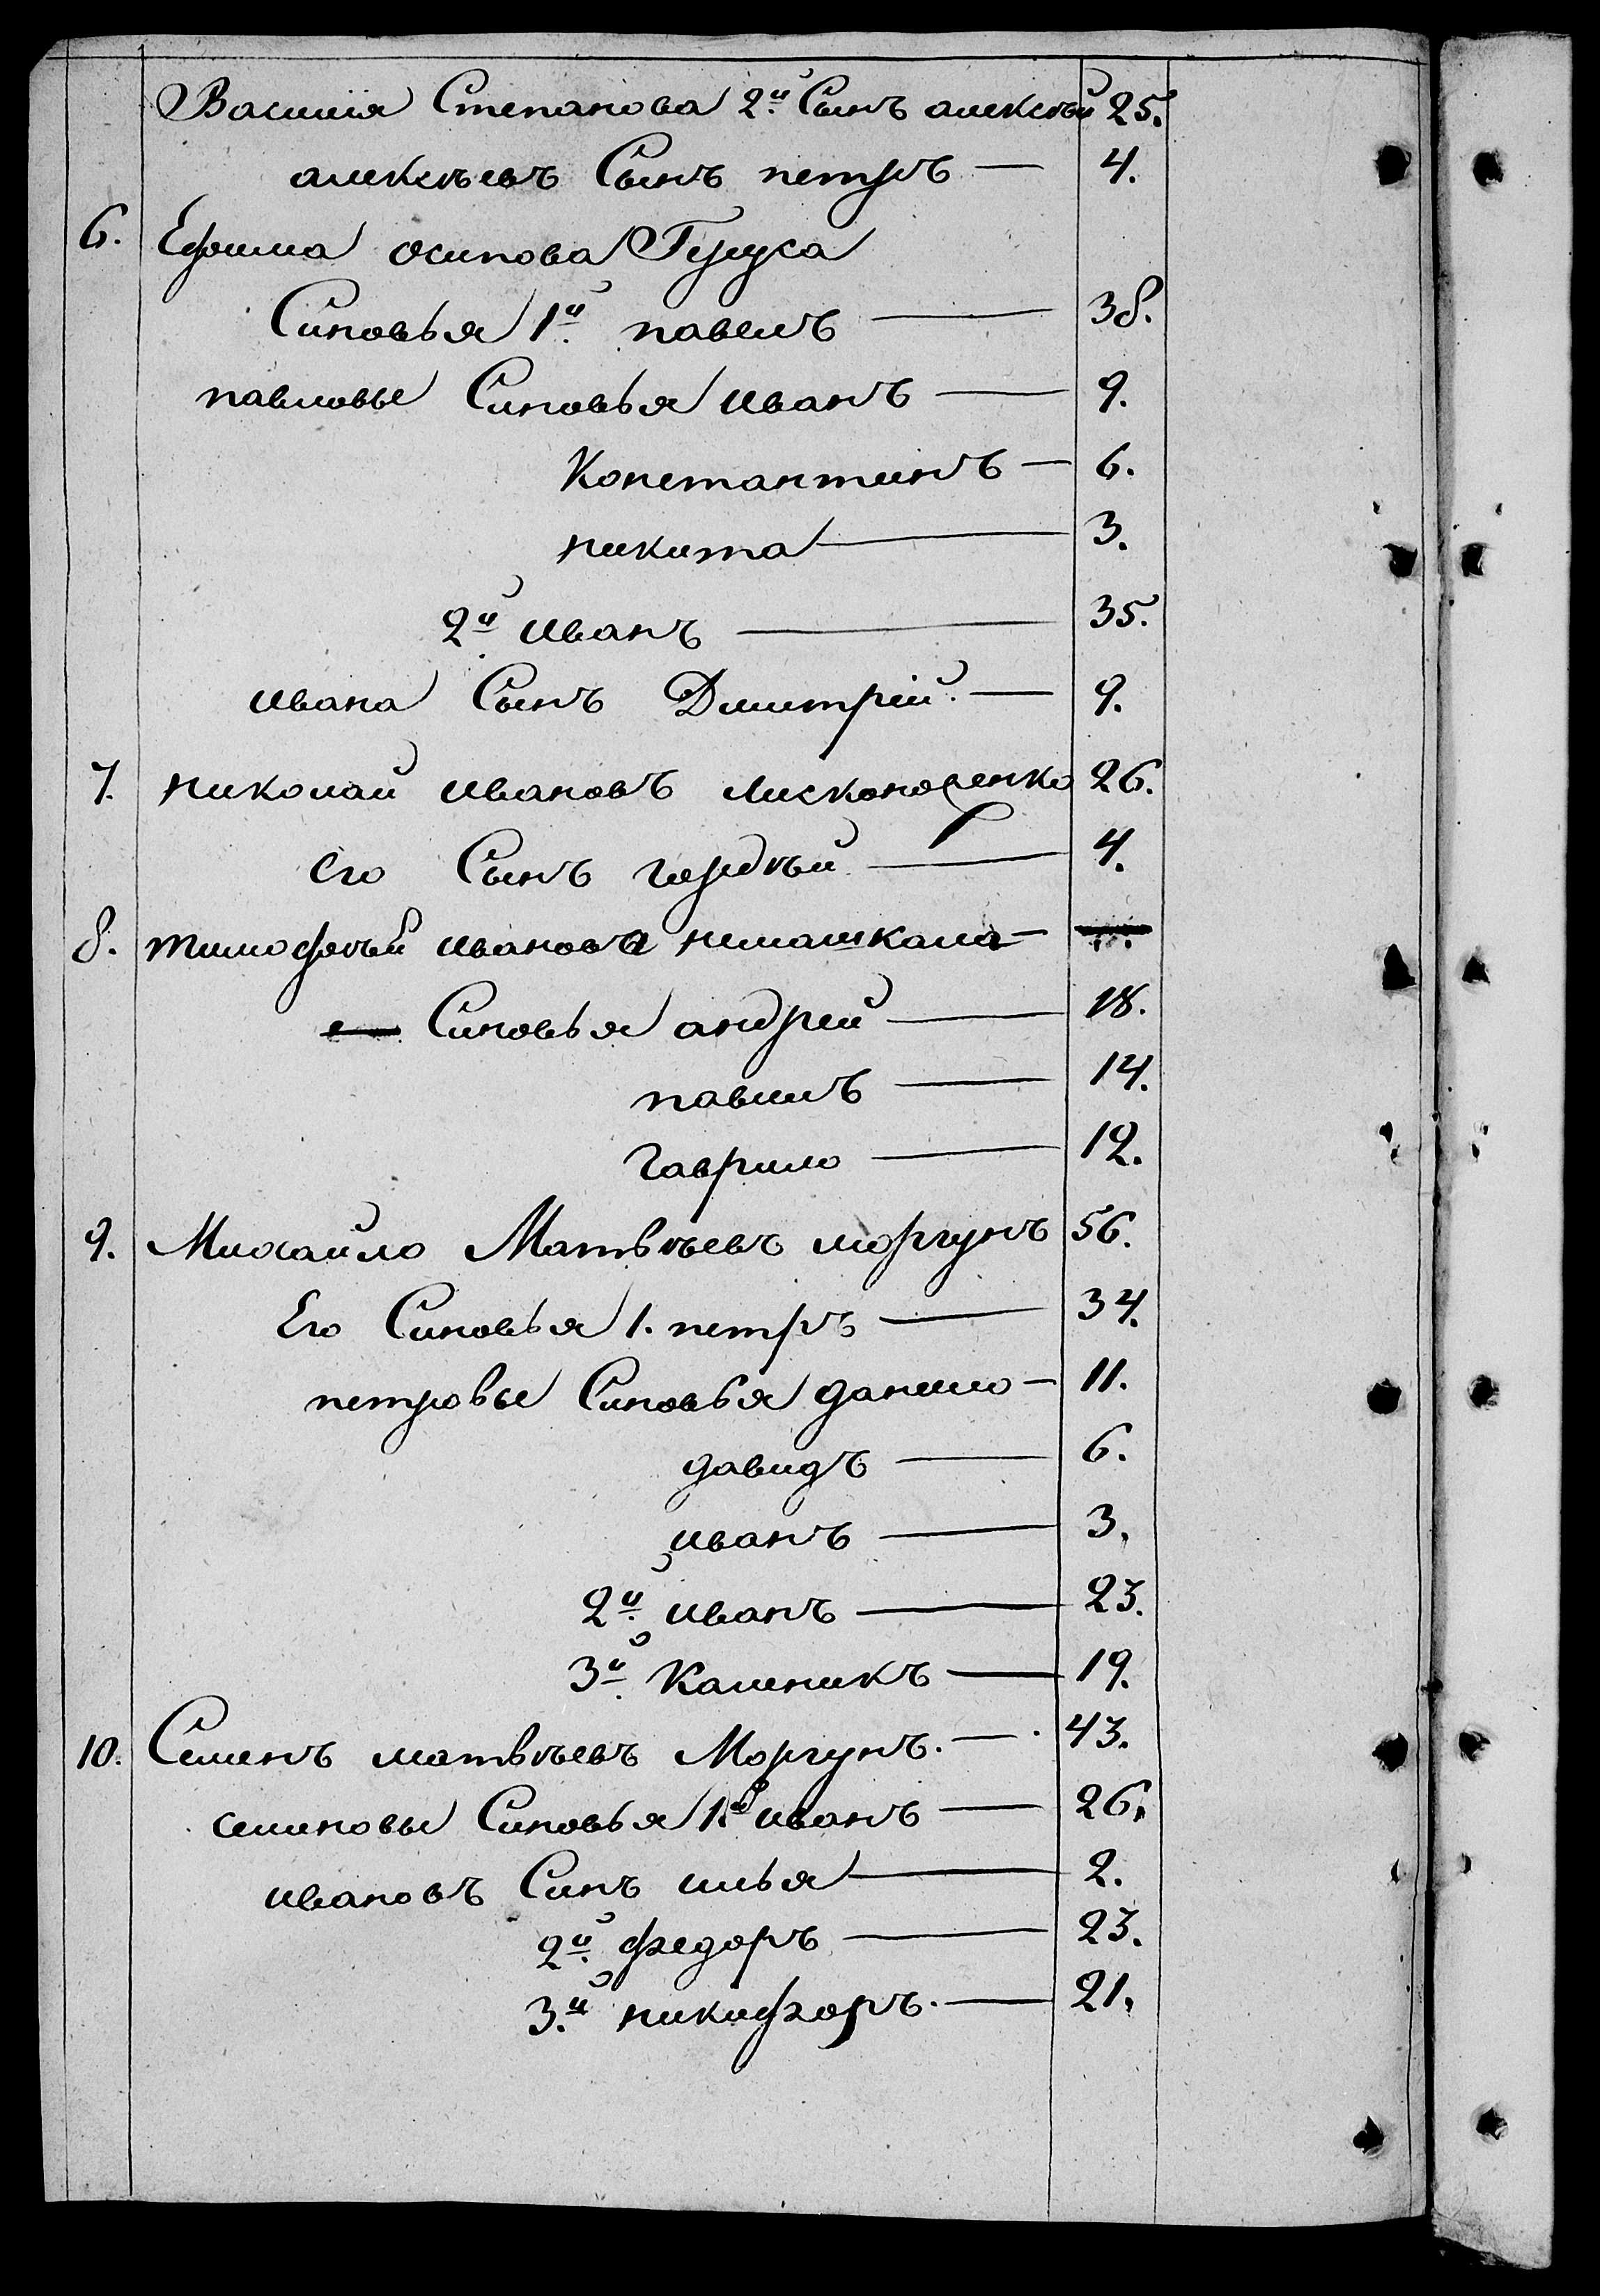 Василія Степанова 2й Сынъ алексѣй 25.
алексѣевъ Сынъ петръ — 4.
6. Ефима осипова
Синовья 1й павелъ — 38.
павловы Синовья иванъ — 9.
Константинъ — 6.
никита — 3.
2й иванъ — 35.
ивана Сынъ Дмитрій. — 9.
7. николай ивановъ 26.
его Сынъ гордѣй — 4.
8. тимофѣй иванова немашкала —
Синовья андрей — 18.
павилъ — 14.
гаврило — 12.
9. Михайло Матвѣевъ моргунъ 56.
Его Синовья 1. петръ — 34.
петровы Синовья данило — 11.
давидъ — 6.
иванъ — 3.
2й иванъ — 23.
3й Калникъ — 19.
10. Семенъ матвѣевъ Моргунъ. — 43.
семеновы Синовья 1й иванъ — 26.
ивановъ Синъ илья — 2.
2й федоръ — 23.
3й никифоръ. — 21.